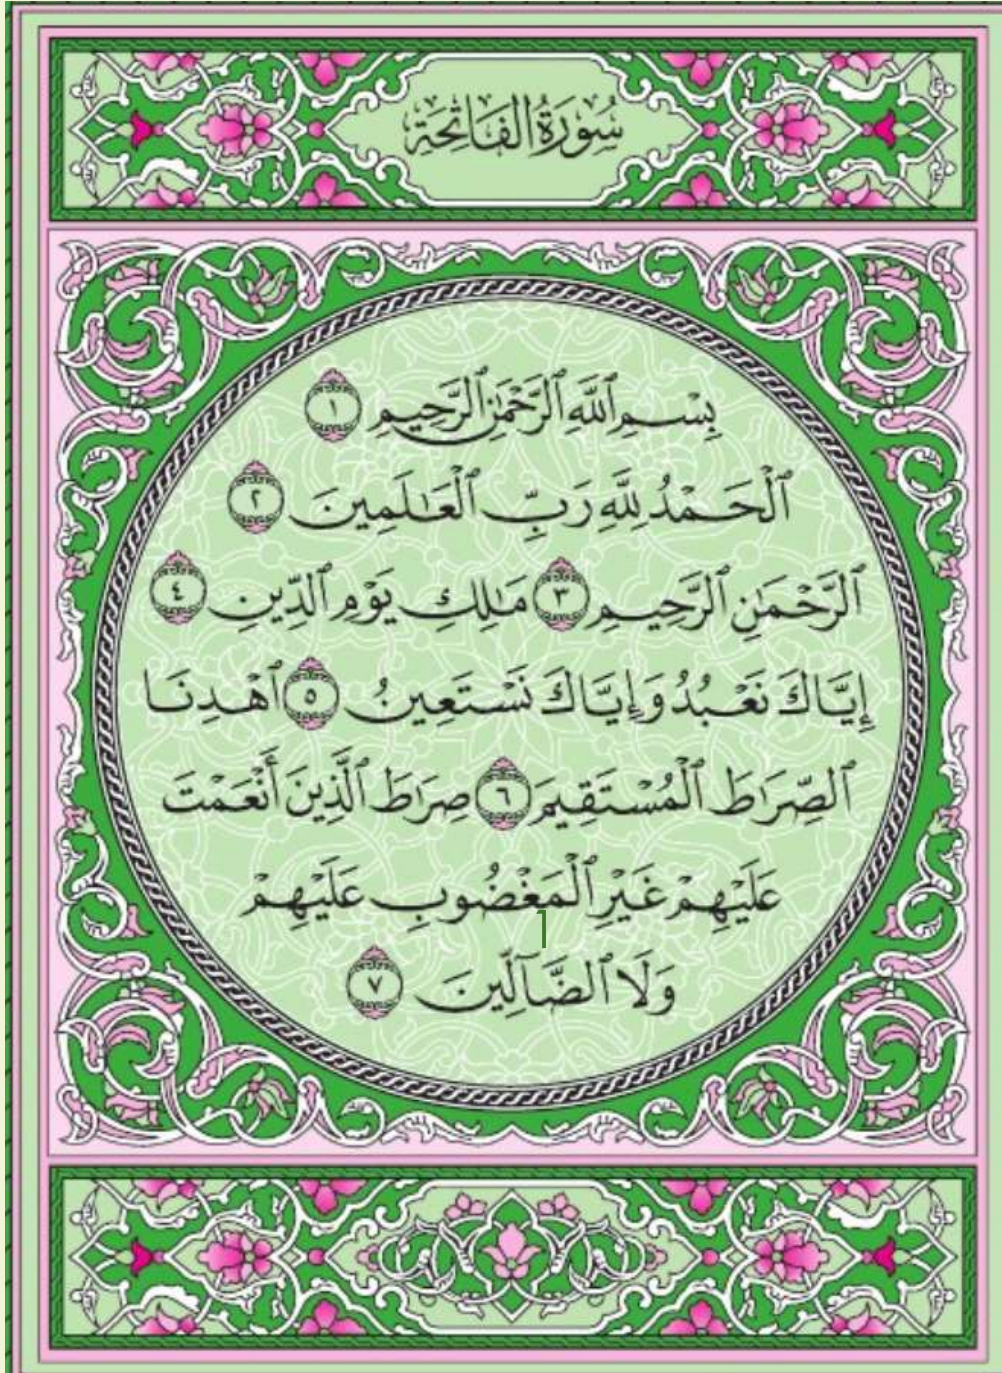 سُورَةُ الفَاتِحَةِ
بِسْمِ ٱللَّهِ ٱلرَّحْمَٰنِ ٱلرَّحِيمِ ١
ٱلْحَمْدُ لِلَّهِ رَبِّ ٱلْعَٰلَمِينَ ٢
ٱلرَّحْمَٰنِ ٱلرَّحِيمِ ٣ مَٰلِكِ يَوْمِ ٱلدِّينِ ٤
إِيَّاكَ نَعْبُدُ وَإِيَّاكَ نَسْتَعِينُ ٥ ٱهْدِنَا
ٱلصِّرَٰطَ ٱلْمُسْتَقِيمَ ٦ صِرَٰطَ ٱلَّذِينَ أَنْعَمْتَ
عَلَيْهِمْ غَيْرِ ٱلْمَغْضُوبِ عَلَيْهِمْ
1
وَلَا ٱلضَّآلِّينَ ٧